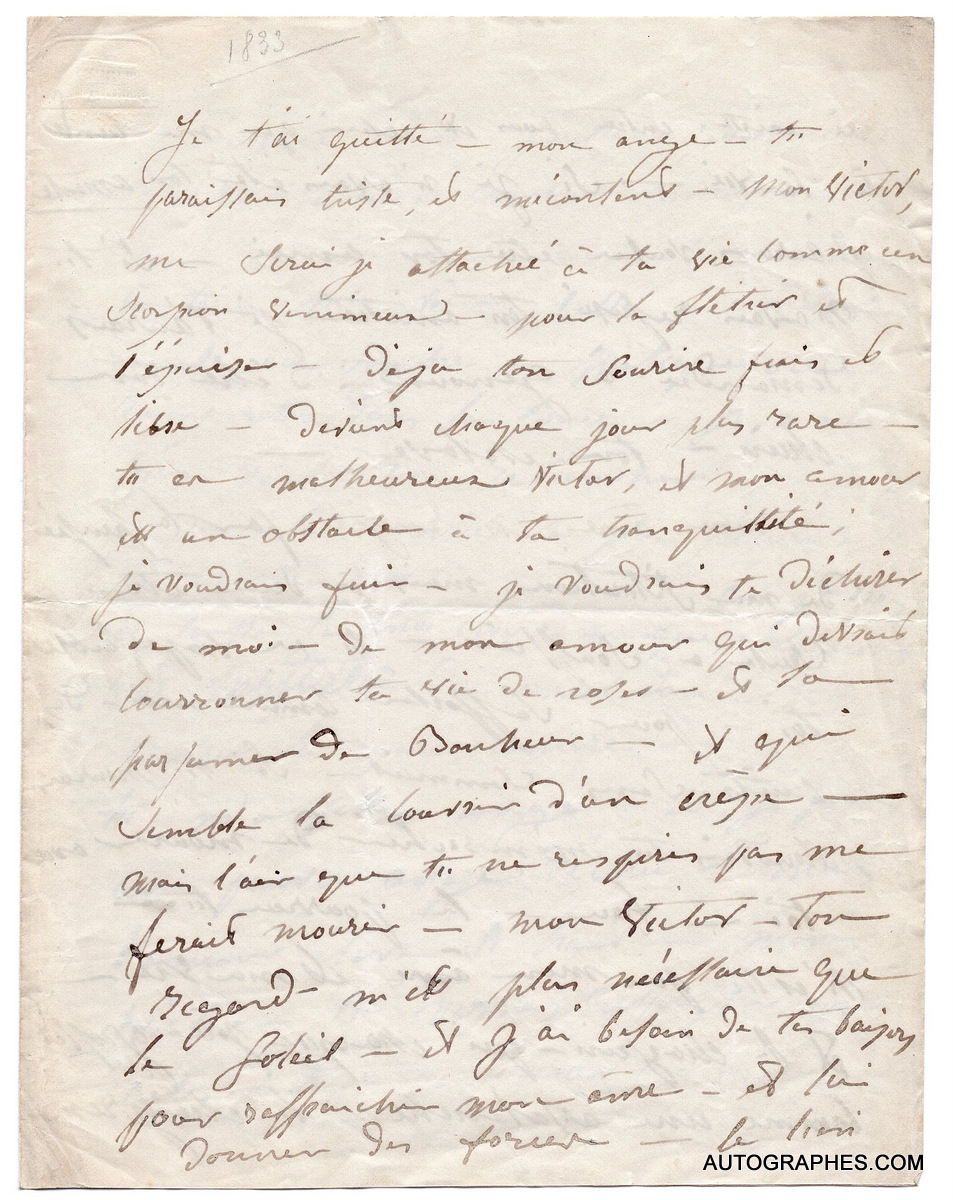 1833
Je t'ai quitté – mon ange – tu
paraissais triste, et mécontent – Mon Victor,
me serai je attachée à ta vie comme un
scorpion venimeux – pour la flétrir et
l'épuiser – déja ton sourire frais et
libre – devient chaque jour plus rare –
tu es malheureux Victor, et mon amour
est un obstacle à ta tranquillité ;
je voudrais fuir – je voudrais te délivrer
de moi – de mon amour qui devrait
courronner ta vie de roses – et la
parfumer de Bonheur – et qui
semble la couvrir d'un crêpe —
mais l'air que tu ne respires pas me
ferait mourir – mon Victor – ton
regard m'est plus nécessaire que
le soleil – et j'ai besoin de tes baisers
pour raffraichir mon âme – et lui
donner des forces – le lien
AUTOGRAPHES.COM